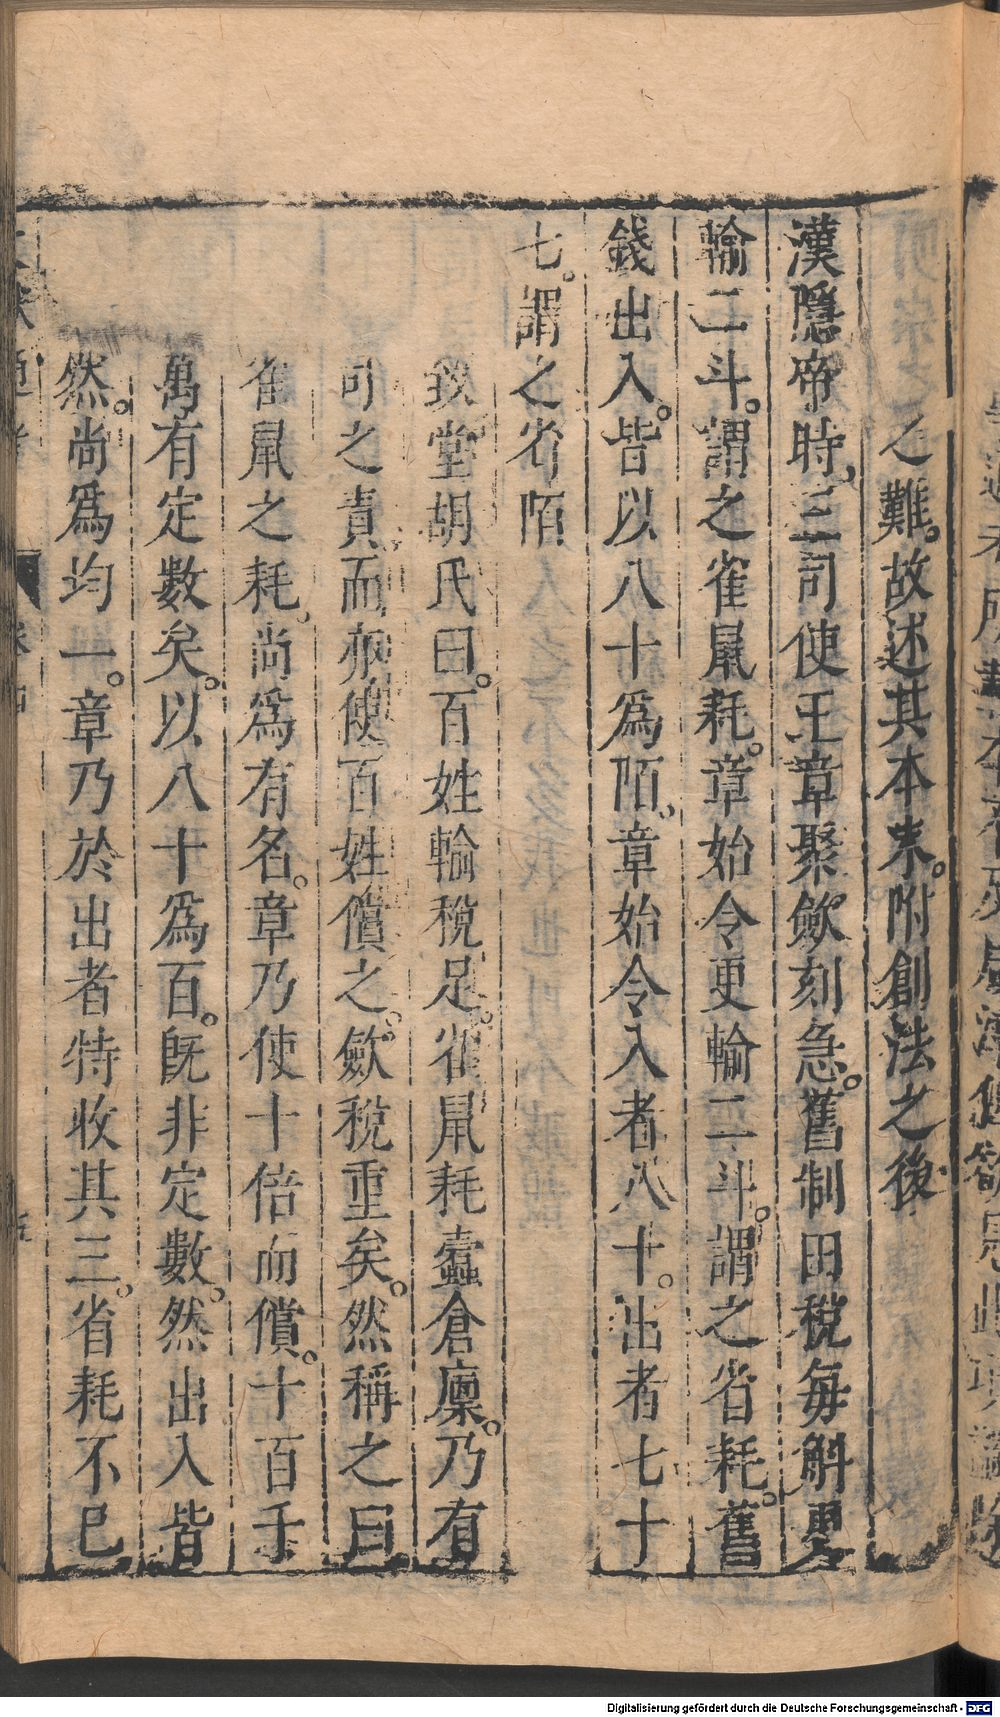 之難。故述其本末。附創法之後
漢隱帝時，三司使王章聚歛刻急。舊制田稅每斛更
輸二斗。謂之雀䑕耗。章始令更輸二斗。謂之省耗。舊
錢出入。皆以八十爲陌。章始令入者八十。出者七十
七。謂之省陌
致堂胡氏曰。百姓輸稅足。雀䑕耗蠹倉廩。乃有
司之責，而亦使百姓償之。歛稅重矣。然稱之曰
雀䑕之耗，尚爲有名。章乃使十倍而償。十百千
萬有定數矣。以八十爲百。旣非定數。然出入皆
然。尚爲均一。章乃於出者特收其三。省耗不已
通考
卷四
五
Digitalisierung gefördert durch die Deutsche Forschungsgemeinschaft - DFG